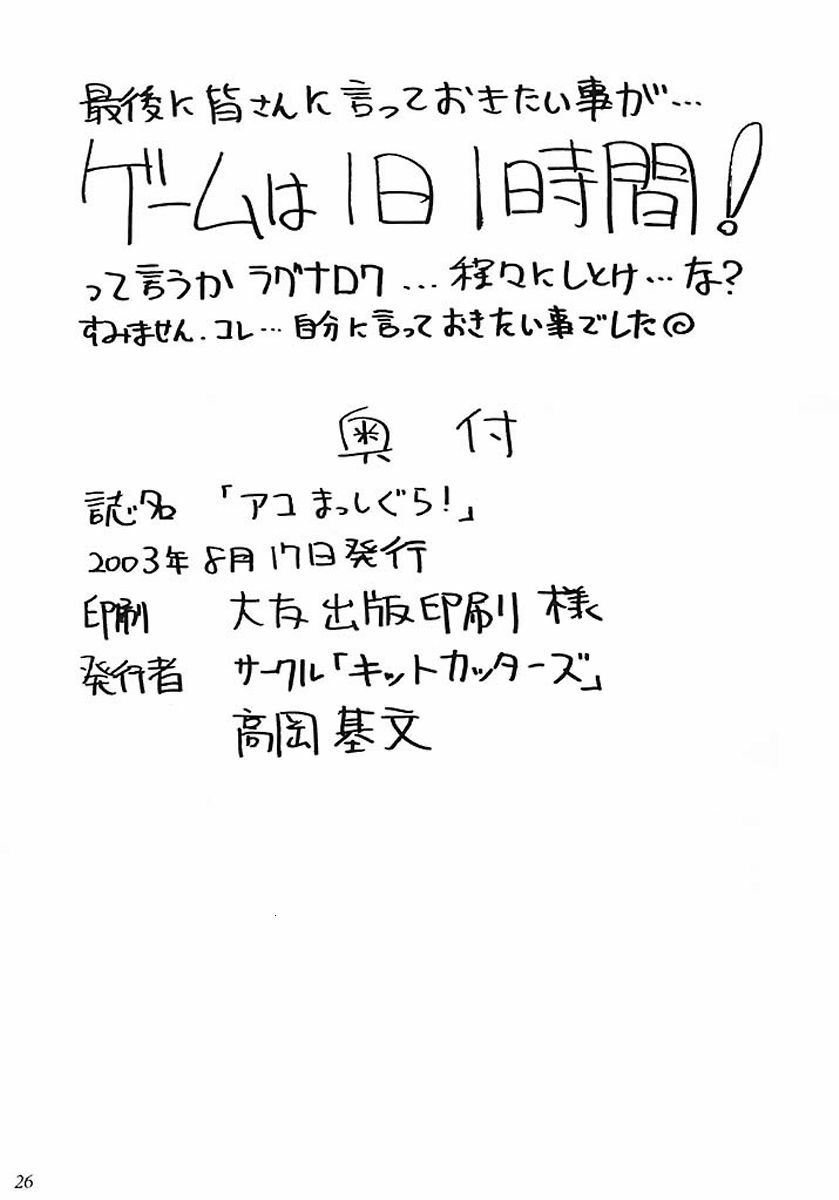 最後に皆さんに言っておきたい事が…
ゲームは1日1時間!
って言うかラグナロク…程々にしとけ…な?
すみません.コレ…自分に言っておきたい事でした
奥付
誌名 「アコまっしぐら!」
2003年8月17日発行
印刷 大友出版印刷様
発行者 サークル「キットカッターズ」
高岡基文
26